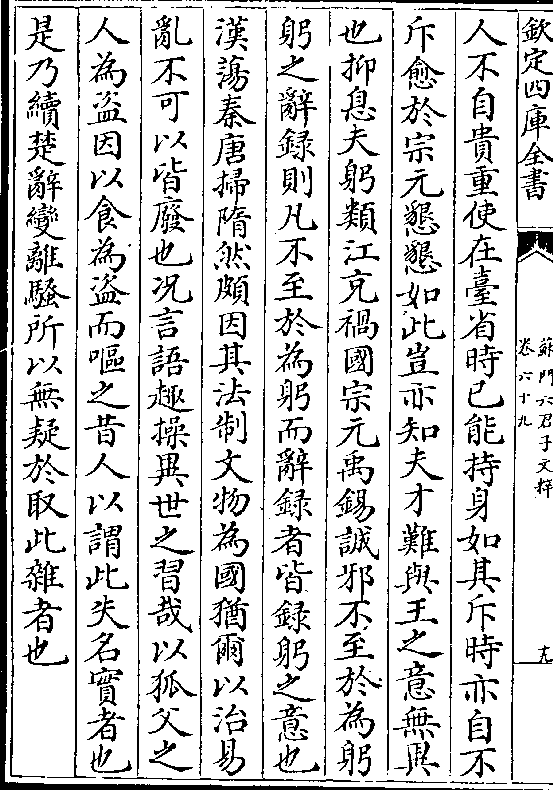 欽定四庫全書
蘇門六君子文粹
卷六十九
十九
人不自貴重使在臺省時已能持身如其斥時亦自不
斥愈於宗元懇懇如此豈亦知夫才難與王之意無異
也抑息夫躬類江充禍國宗元禹錫誠邪不至於為躬
躬之辭錄則凡不至於為躬而辭錄者皆錄躬之意也
漢蕩秦唐掃隋然頗因其法制文物為國猶爾以治易
亂不可以皆廢也况言語趣操異世之習哉以狐父之
人為盜因以食為盜而嘔之昔人以謂此失名實者也
是乃續楚辭變離騷所以無疑於取此雜者也